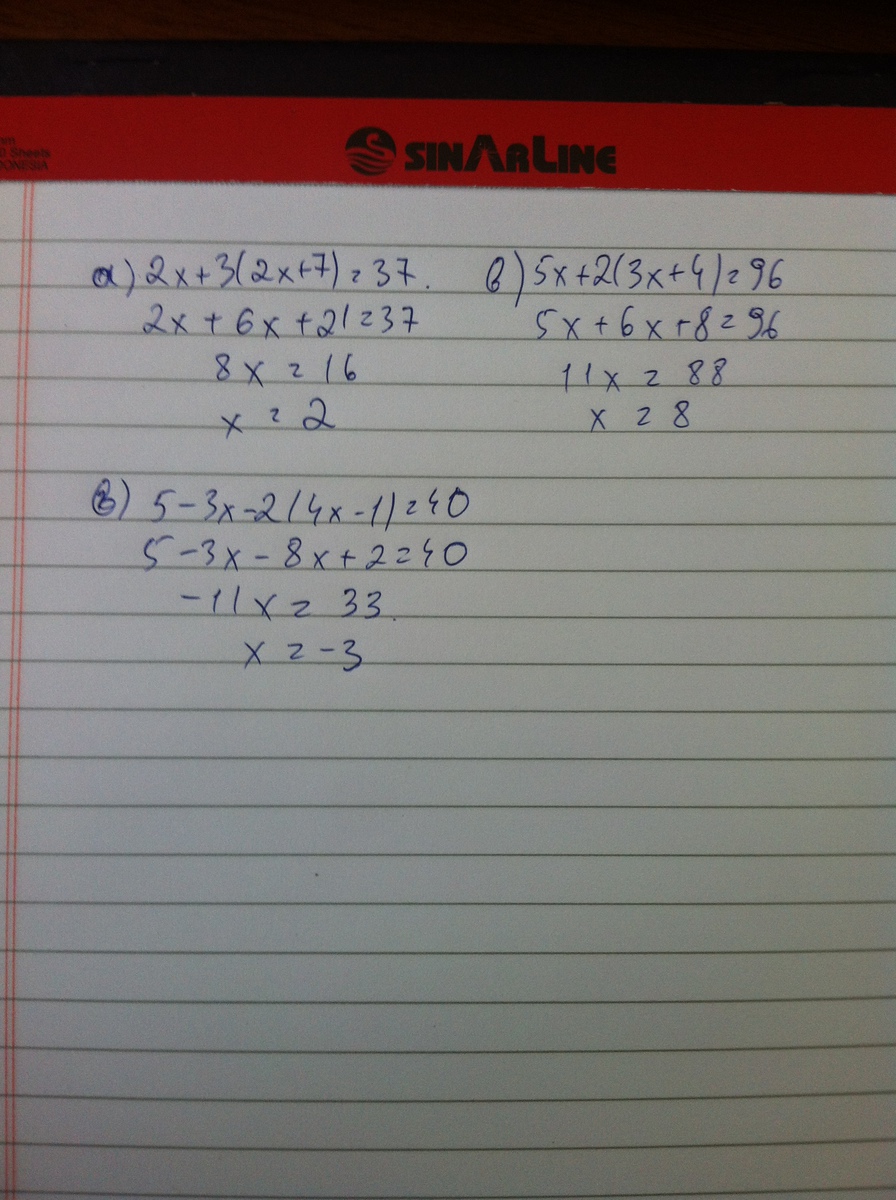 SINARLINE
Sheets
а) 2x+3(2x+7)=37.
2x+6x+21=37
8x=16
x=2
б) 5x+2(3x+4)=96
5x+6x+8=96
11x=88
x=8
в) 5-3x-2(4x-1)=40
5-3x-8x+2=40
-11x=33.
x=-3